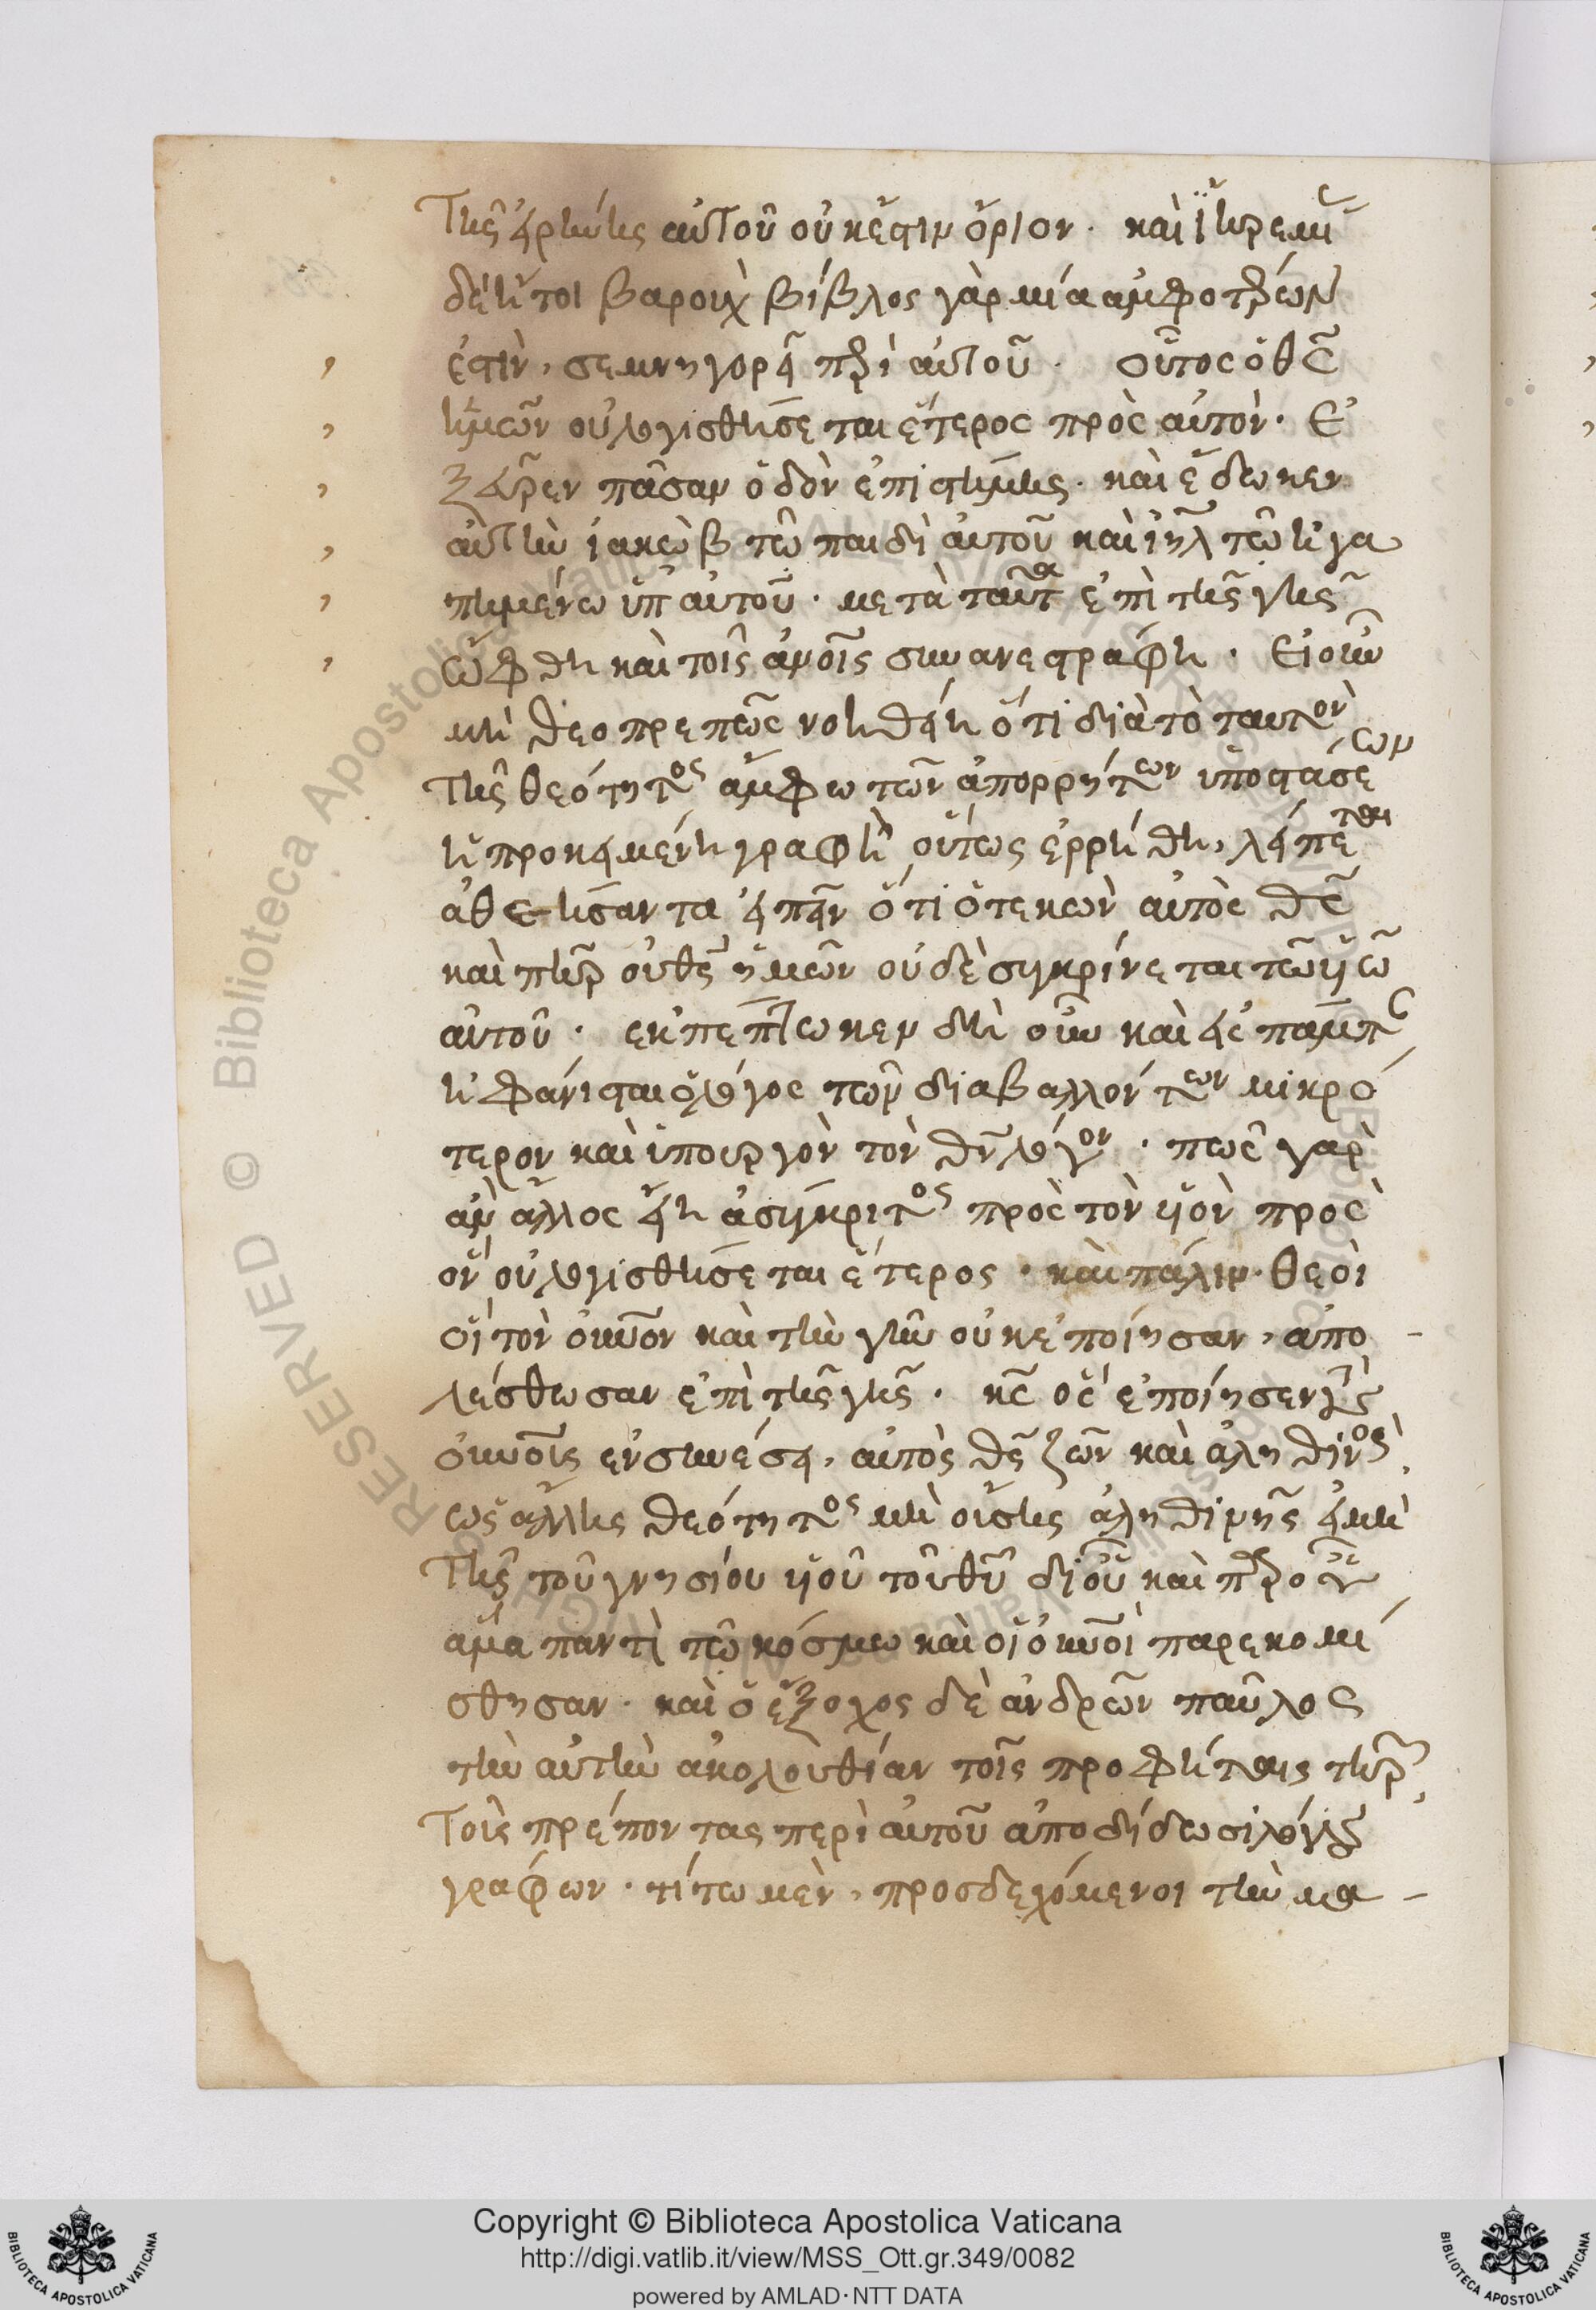 τῆς εἰρήνης αὐτοῦ οὐκ ἔστιν ὅριον. καὶ ἱηρεμι
δὲ ἤτοι βαροὺχ βίβλος γὰρ μία ἀμφοτέρων
ἐστὶν, σεμνηγορεῖ περὶ αὐτοῦ. οὗτος ὁ θς
ἡμῶν οὐ λογισθήσεται ἕτερος πρὸς αὐτόν. ἐ
ξεῦρεν πᾶσαν ὁδὸν ἐπιστήμης. καὶ ἔδωκεν
αὐτὴν ἰακὼβ τῶ παιδὶ αὐτοῦ καὶ ιηλ τῶ ἠγα
πημένω ὑπ αὐτοῦ. μετὰ ταῦτα ἐπὶ τῆς γῆς
ὤφθη καὶ τοῖς ἀνοις συνανεστράφη. εἰ οὖν
μὴ θεοπρεπῶς νοηθείη ὅτι διὰ τὸ ταυτὸν
τῆς θεότητος ἄμφω τῶν ἀπορρήτων ὑποστάσεων
ἡ προκειμένη γραφὴ οὕτως ἐρρήθη, λείπεται
ἀθετήσαντα εἰπεῖν ὅτι ὁ τεκὼν αὐτὸς θς
καὶ πηρ οὐθς ἡμῶν οὐδὲ συγκρίνεται τῶ υἱῶ
αὐτοῦ. ἐκπέπτωκεν δὴ οὖν καὶ εἰς πάμπ
ἠφάνισται ὁ λόγος τῶν διαβαλλόντων μικρό
τερον καὶ ὑπουργὸν τὸν θν λόγον. πῶς γὰρ
ἂν ἄλλος εἴη ἀσύγκριτος πρὸς τὸν υἱὸν πρὸς
ὃν οὐ λογισθήσεται ἕτερος. καὶ πάλιν. θεοὶ
οἳ τὸν οὐνον καὶ τὴν γῆν οὐκ ἐποίησαν, ἀπο
λέσθωσαν ἐπὶ τῆς γῆς. κς ὃς ἐποίησεν τοὺς
οὐνοὺς ἐν συνέσει, αὐτὸς θς ζῶν καὶ ἀληθινός,
ὡς ἄλλης θεότητος μὴ οὔσης ἀληθινῆς εἰ μὴ
τῆς τοῦ γνησίου υἱοῦ τοῦ θυ δι οὗ καὶ πρὸ οὗ
ἅμα παντὶ τῶ κόσμω καὶ οἱ οὐνοὶ παρεκομί
σθησαν. καὶ ὁ ἔξοχος δὲ ἀνδρῶν παῦλος
τὴν αὐτὴν ἀκολουθίαν τοῖς προφήταις τηρ,
τοὺς πρέποντας περὶ αὐτοῦ ἀποδίδωσι λόγους
γράφων. τίτω μὲν, προσδεχόμενοι τὴν μα
Copyright © Biblioteca Apostolica Vaticana
http://digi.vatlib.it/view/MSS_Ott.gr.349/0082
powered by AMLAD·NTT DATA